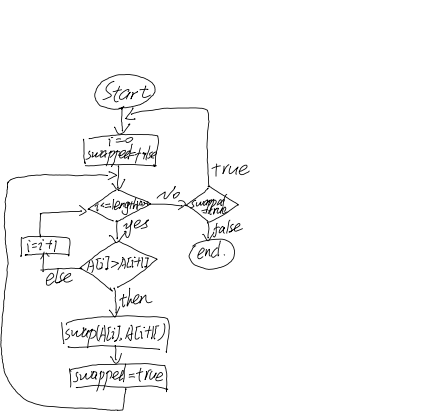 Start
i=0
swapped=false
No
true
swapped
=true
yes
false
i=i+1
A[i]>A[i+1]
end.
else
then
swap(A[i], A[i+1])
swapped=true